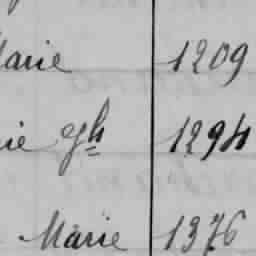 Marie 1209
rie Gh 1294
Marie 1376